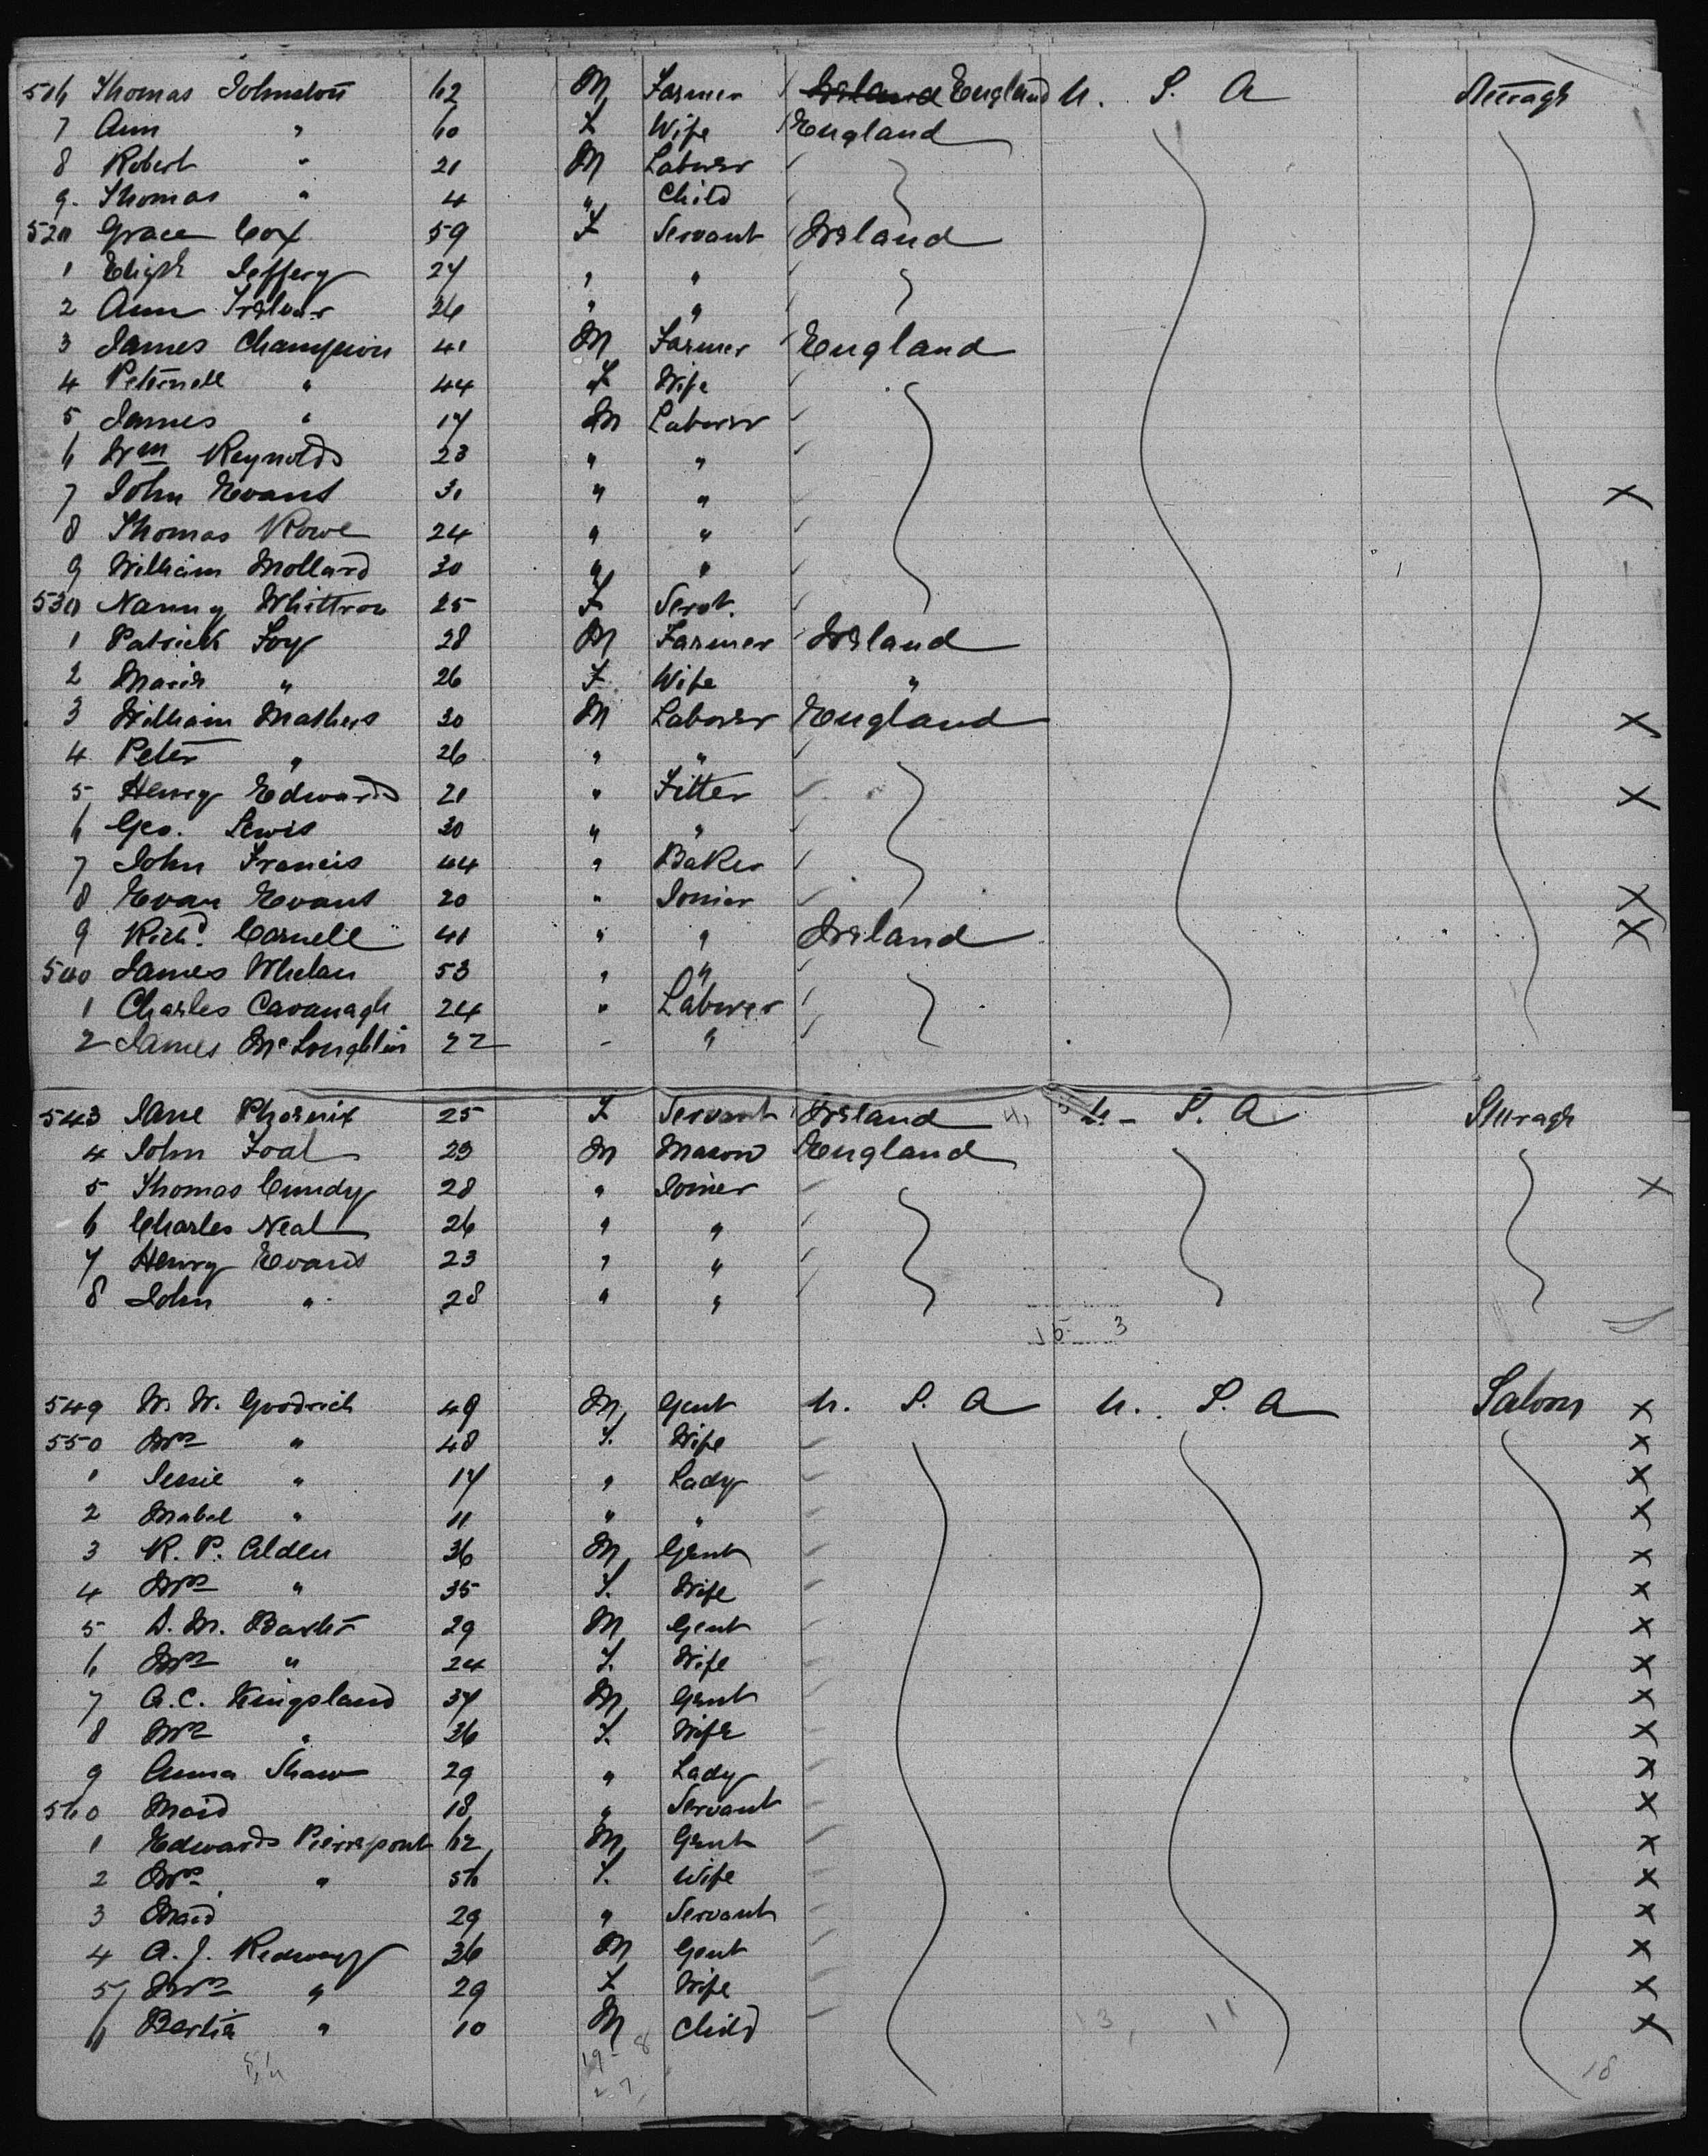 516 Thomas Johnston 62 M Farmer Ireland England U. S. A Steerage
7 Ann " 60 F Wife England
8 Robert " 21 M Laborer
9. Thomas " 4 " Child
520 Grace Cox 59 F Servant Ireland
1 Elizth Jeffery 27 " "
2 Ann 26 " "
3 James Champion 41 M Farmer England
4 Peternell " 44 F Wife
5 James " 17 M Laborer
6 Wm Reynolds 23 " "
7 John Evans 31 " " X
8 Thomas Rowe 24 " "
9 William Mollard 30 " "
530 Nanny 25 F Servt.
1 Patrick Foy 28 M Farmer Ireland
2 Maria " 26 F Wife "
3 William Mathews 30 M Laborer England X
4 Peter " 26 " "
5 Henry Edwards 21 " Fitter X
6 Geo. Lewis 30 " "
7 John Francis 44 " Baker
8 Evan Evans 20 " Joiner X
9 Richd. Carnell 41 " " Ireland X
540 James Whelan 53 " "
1 Charles Cavanagh 24 " Laborer
2 James McLoughlin 22 - "
543 Jane Phoenix 25 F Servant Ireland U. S. A Steerage
4 John Foal 23 M Mason England
5 Thomas Cundy 28 " Joiner X
6 Charles Neal 26 " "
7 Henry Evans 23 " "
8 John " 28 " "
15 3
549 W. W. Goodrich 49 M Gent U. S. A U. S. A Saloon X
550 Mrs " 48 F. Wife X
1 Jessie " 17 " Lady X
2 Mabel " 11 " " X
3 R. P. Alden 36 M Gent X
4 Mrs " 35 F. Wife X
5 M. 29 M Gent X
6 Mrs " 24 F. Wife X
7 A. C. Kingsland 37 M Gent X
8 Mrs " 36 F. Wife X
9 Anna Shaw 29 " Lady X
560 Maid 18 " Servant X
1 Edwards Pierrepont 62 M Gent X
2 Mrs " 56 F. Wife X
3 Maid 29 " Servant X
4 A. J. 36 M Gent X
5 Mrs " 29 F Wife X
6 Bertia " 10 M Child X
19 - 8
18